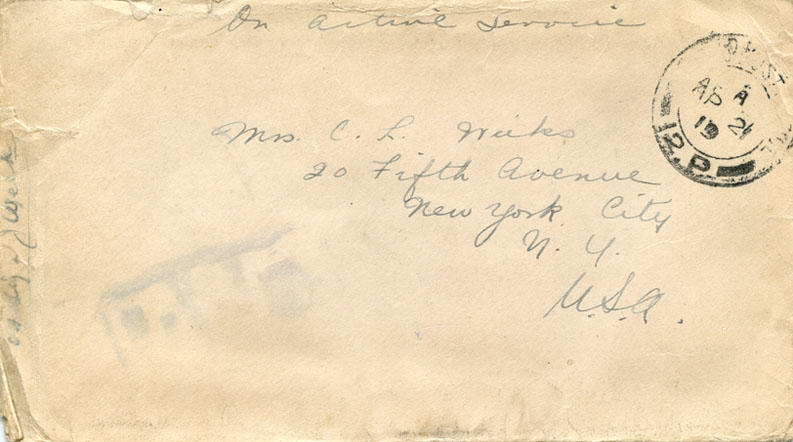 On Active Service
Mrs. C. L. Wicks
20 Fifth Avenue
New York City
N. Y.
U.S.A.
A
AP 24
19
12.P